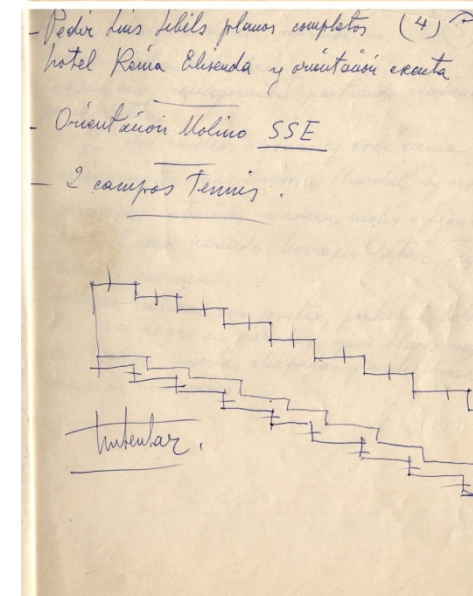 - Pedir Luis Sibils planos completos (4)
hotel Reina Elisenda y orientación exacta
- Orientación Molino SSE
- 2 campos Tennis.
Intentar.